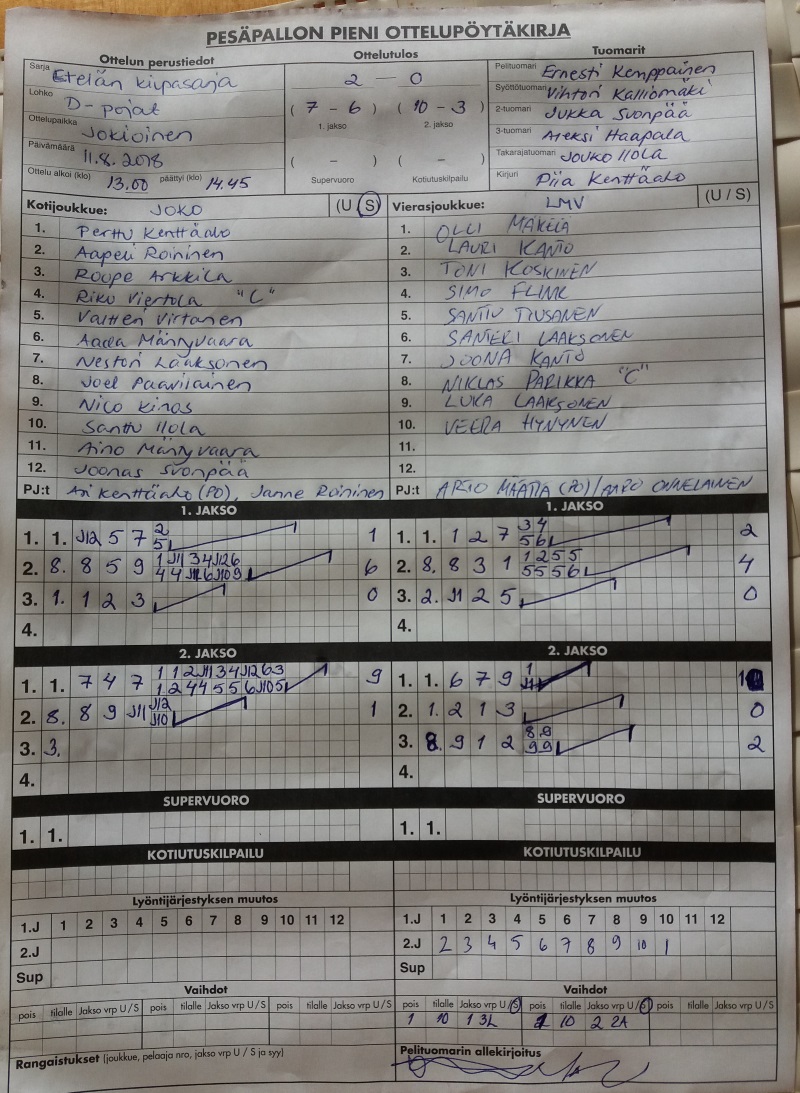 PESÄPALLON PIENI OTTELUPÖYTÄKIRJA
Ottelun perustiedot
Sarja Etelän kilpasarja
Lohko D-pojat
Ottelupaikka Jokioinen
Päivämäärä 11.8.2018
Ottelu alkoi (klo) 13.00 päättyi (klo) 14.45
Ottelutulos
2 — 0
( 7 - 6 ) ( 10 - 3 )
1. jakso 2. jakso
( - ) ( - )
Supervuoro Kotiutuskilpailu
Tuomarit
Pelituomari Ernesti Kemppainen
Syöttötuomari Vihtori Kalliomäki
2-tuomari Jukka Suonpää
3-tuomari Aleksi Haapala
Takarajatuomari Jouko Ilola
Kirjuri Piia Kenttäaho
Kotijoukkue: JOKO (U / S)
1. Perttu Kenttäaho
2. Aapeli Roininen
3. Roope Arkkila
4. Riku Viertola "C"
5. Valtteri Virtanen
6. Aada Männyvaara
7. Nestori Laaksonen
8. Joel Paavilainen
9. Nico Kinos
10. Santtu Ilola
11. Aino Männyvaara
12. Joonas Suonpää
PJ:t Ari Kenttäaho (PO), Janne Roininen
Vierasjoukkue: LMV (U / S)
1. OLLI MÄKELÄ
2. LAURI KANTO
3. TONI KOSKINEN
4. SIMO FLINK
5. SANTTU TIUSANEN
6. SANTERI LAAKSONEN
7. JOONA KANTO
8. NIKLAS PARIKKA "C"
9. LUKA LAAKSONEN
10. VEERA HYNYNEN
11.
12.
PJ:t ARTO MÄÄTTÄ (PO) / AARO ONNELAINEN
1. JAKSO
1. 1. J12 5 7 2 1
5
2. 8. 8 5 9 1 J11 3 4 J12 6 6
4 4 J11 6 J10 9
3. 1. 1 2 3 0
4.
1. JAKSO
1. 1. 1 2 7 3 4 2
5 6
2. 8. 8 3 1 1 2 5 5 4
5 5 5 6
3. 2. J11 2 5 0
4.
2. JAKSO
1. 1. 7 4 7 1 1 2 J11 3 4 J12 6 3 9
1 2 4 4 5 5 6 J10 5
2. 8. 8 9 J11 J12 1
J10
3. 3.
4.
2. JAKSO
1. 1. 6 7 9 1 1
2. 1. 2 1 3 0
3. 8. 9 1 2 8 9 2
9 9
4.
SUPERVUORO
1. 1.
SUPERVUORO
1. 1.
KOTIUTUSKILPAILU
KOTIUTUSKILPAILU
Lyöntijärjestyksen muutos
1.J 1 2 3 4 5 6 7 8 9 10 11 12
2.J
Sup
Lyöntijärjestyksen muutos
1.J 1 2 3 4 5 6 7 8 9 10 11 12
2.J 2 3 4 5 6 7 8 9 10 1
Sup
Vaihdot
pois tilalle Jakso vrp U / S pois tilalle Jakso vrp U / S pois tilalle Jakso vrp U / S
Vaihdot
pois tilalle Jakso vrp U / S pois tilalle Jakso vrp U / S pois tilalle Jakso vrp U / S
1 10 1 3L 1 10 2 2A
Rangaistukset (joukkue, pelaaja nro, jakso vrp U / S ja syy)
Pelituomarin allekirjoitus